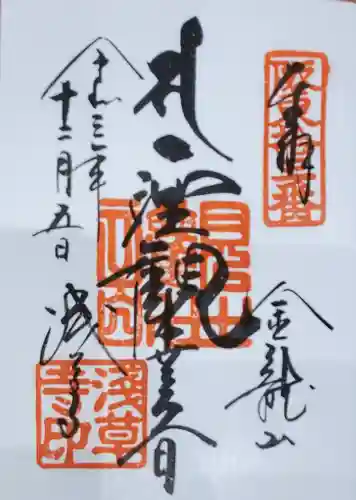 奉拝
金龍山
聖観世音
令和三年
十二月五日
浅草寺
浅草
寺印